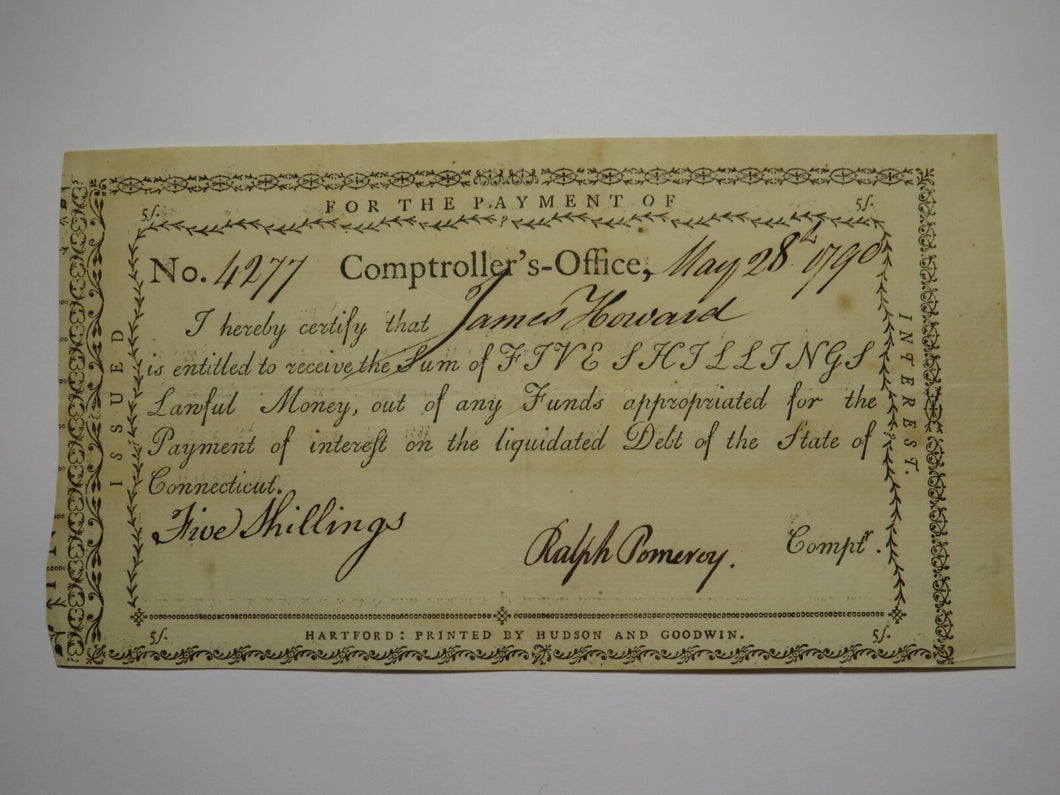 FOR THE PAYMENT OF
5/. 5/.
No. 4277 Comptroller's-Office, May 28th 1790
I hereby certify that James Howard
is entitled to receive the Sum of FIVE SHILLINGS
Lawful Money, out of any Funds appropriated for the
Payment of intereſt on the liquidated Debt of the State of
Connecticut.
Five Shillings
Ralph Pomeroy. Comptr.
5/. 5/.
HARTFORD: PRINTED BY HUDSON AND GOODWIN.
ISSUED
INTEREST.